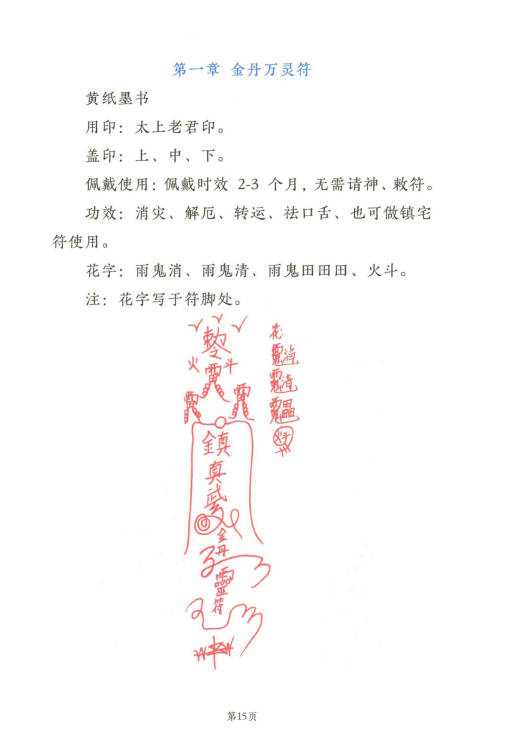 第一章 金丹万灵符
黄纸墨书
用印：太上老君印。
盖印：上、中、下。
佩戴使用：佩戴时效 2-3 个月，无需请神、敕符。
功效：消灾、解厄、转运、祛口舌、也可做镇宅
符使用。
花字：雨鬼消、雨鬼清、雨鬼田田田、火斗。
注：花字写于符脚处。
火 斗
鎮
真
武
金
丹
靈
符
花
第15页